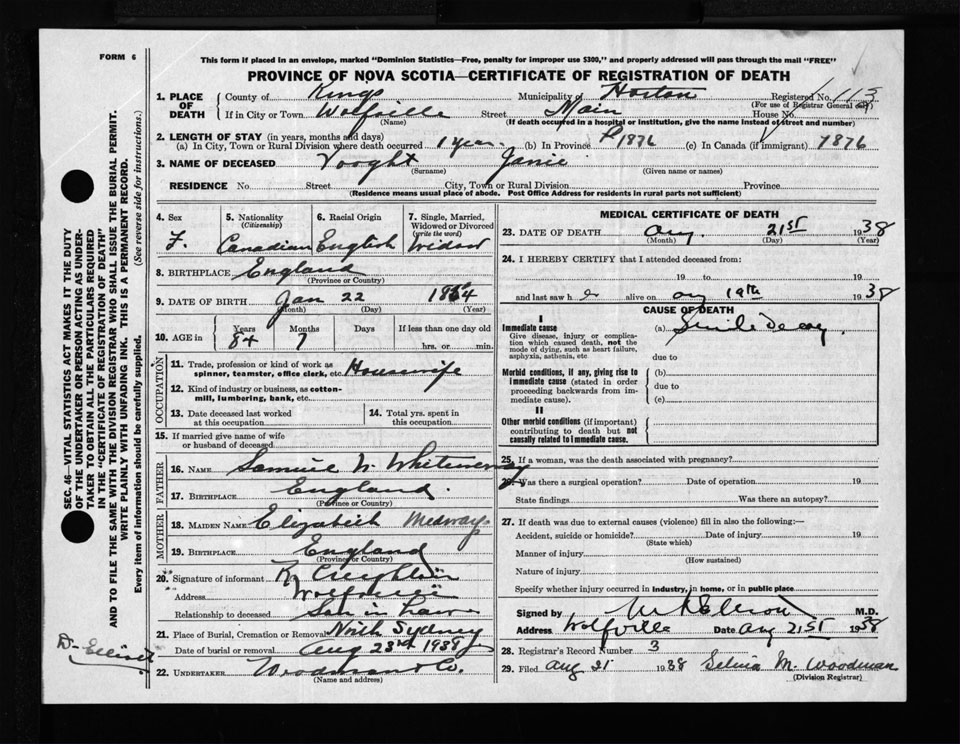 FORM 6
This form if placed in an envelope, marked "Dominion Statistics—Free, penalty for improper use $300," and properly addressed will pass through the mail "FREE"
PROVINCE OF NOVA SCOTIA—CERTIFICATE OF REGISTRATION OF DEATH
1. PLACE OF DEATH
County of Kings Municipality of Horton Registered No. 113
(For use of Registrar General only)
If in City or Town Wolfville Street Main House No.
(Name) (If death occurred in a hospital or institution, give the name instead of street and number)
2. LENGTH OF STAY (in years, months and days)
(a) In City, Town or Rural Division where death occurred 1 year. (b) In Province 1876 (c) In Canada (if immigrant) 1876
3. NAME OF DECEASED Vooght Janie
(Surname) (Given name or names)
RESIDENCE No. Street City, Town or Rural Division Province
(Residence means usual place of abode. Post Office Address for residents in rural parts not sufficient)
4. Sex
F.
5. Nationality (Citizenship)
Canadian
6. Racial Origin
English
7. Single, Married, Widowed or Divorced (write the word)
Widow
8. BIRTHPLACE England
(Province or Country)
9. DATE OF BIRTH Jan 22
(Month) (Day) (Year)
10. AGE in Years Months Days If less than one day old
84 7 hrs. or min.
OCCUPATION
11. Trade, profession or kind of work as spinner, teamster, office clerk, etc. Housewife
12. Kind of industry or business, as cotton-mill, lumbering, bank, etc.
13. Date deceased last worked at this occupation
14. Total yrs. spent in this occupation
15. If married give name of wife or husband of deceased
FATHER
16. NAME Samuel W.
17. BIRTHPLACE England.
(Province or Country)
MOTHER
18. MAIDEN NAME Elizabeth Medway
19. BIRTHPLACE England
(Province or Country)
20. Signature of informant Creighton
Address Wolfville
Relationship to deceased Son in Law
21. Place of Burial, Cremation or Removal North Sydney
Date of burial or removal Aug 23rd 1938
22. UNDERTAKER Woodman & Co.
(Name and address)
MEDICAL CERTIFICATE OF DEATH
23. DATE OF DEATH Aug. 21st 1938
(Month) (Day) (Year)
24. I HEREBY CERTIFY that I attended deceased from:
19 to 19
and last saw h er alive on Aug 19th 1938
CAUSE OF DEATH
I
Immediate cause
Give disease, injury or complication which caused death, not the mode of dying, such as heart failure, asphyxia, asthenia, etc.
(a) Senile Decay.
due to
Morbid conditions, if any, giving rise to immediate cause (stated in order proceeding backwards from immediate cause).
(b)
due to
(c)
II
Other morbid conditions (if important) contributing to death but not causally related to immediate cause.
25. If a woman, was the death associated with pregnancy?
26. Was there a surgical operation? Date of operation 19
State findings Was there an autopsy?
27. If death was due to external causes (violence) fill in also the following:—
Accident, suicide or homicide? Date of injury 19
(State which)
Manner of injury
(How sustained)
Nature of injury
Specify whether injury occurred in industry, in home, or in public place
Signed by M.D.
Address Wolfville Date Aug 21st 1938
28. Registrar's Record Number 3
29. Filed Aug 21 1938 Selina M. Woodman
(Division Registrar)
SEC. 46—VITAL STATISTICS ACT MAKES IT THE DUTY
OF THE UNDERTAKER OR PERSON ACTING AS UNDERTAKER TO OBTAIN ALL THE PARTICULARS REQUIRED
IN THE "CERTIFICATE OF REGISTRATION OF DEATH"
AND TO FILE THE SAME WITH THE DIVISION REGISTRAR WHO SHALL ISSUE THE BURIAL PERMIT.
WRITE PLAINLY WITH UNFADING INK. THIS IS A PERMANENT RECORD.
Every item of information should be carefully supplied. (See reverse side for instructions.)
Dr Elliott